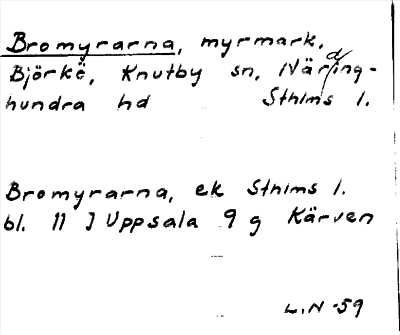 Bromyrarna, myrmark,
Björkö, Knutby sn, Närding-
hundra hd Sthlms l.
Bromyrarna, ek Sthlms l.
bl. 11 J Uppsala 9 g Kärven
L.N -59